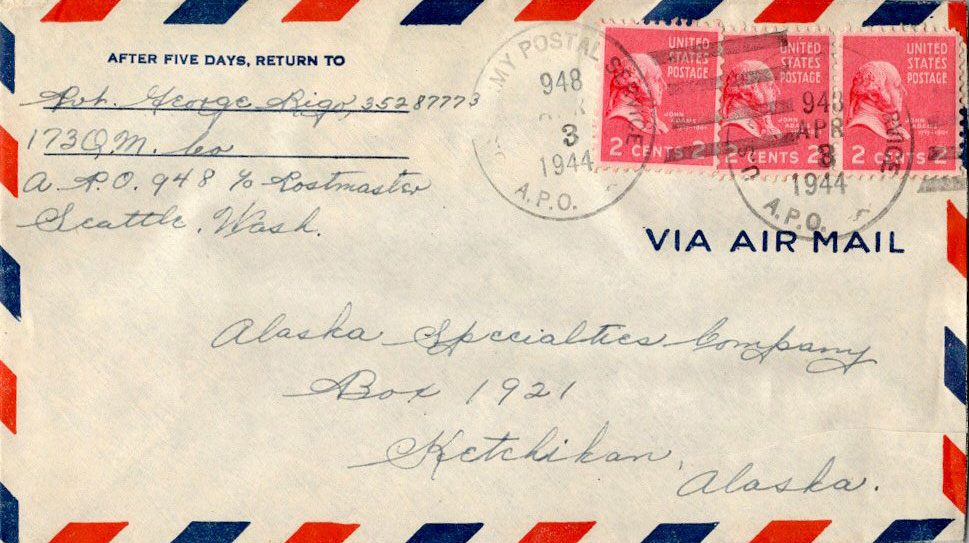 AFTER FIVE DAYS, RETURN TO
Pvt. George Rigo, 35287773
173 Q.M. Co
A.P.O. 948 c/o Postmaster
Seattle, Wash.
ARMY POSTAL SERVICE
948
APR
3
1944
A.P.O.
UNITED
STATES
POSTAGE
JOHN
ADAMS
2 CENTS 2
UNITED
STATES
POSTAGE
JOHN
ADAMS
2 CENTS 2
UNITED
STATES
POSTAGE
JOHN
ADAMS
2 CENTS 2
948
APR
3
1944
A.P.O.
VIA AIR MAIL
Alaska Specialties Company
Box 1921
Ketchikan,
Alaska.